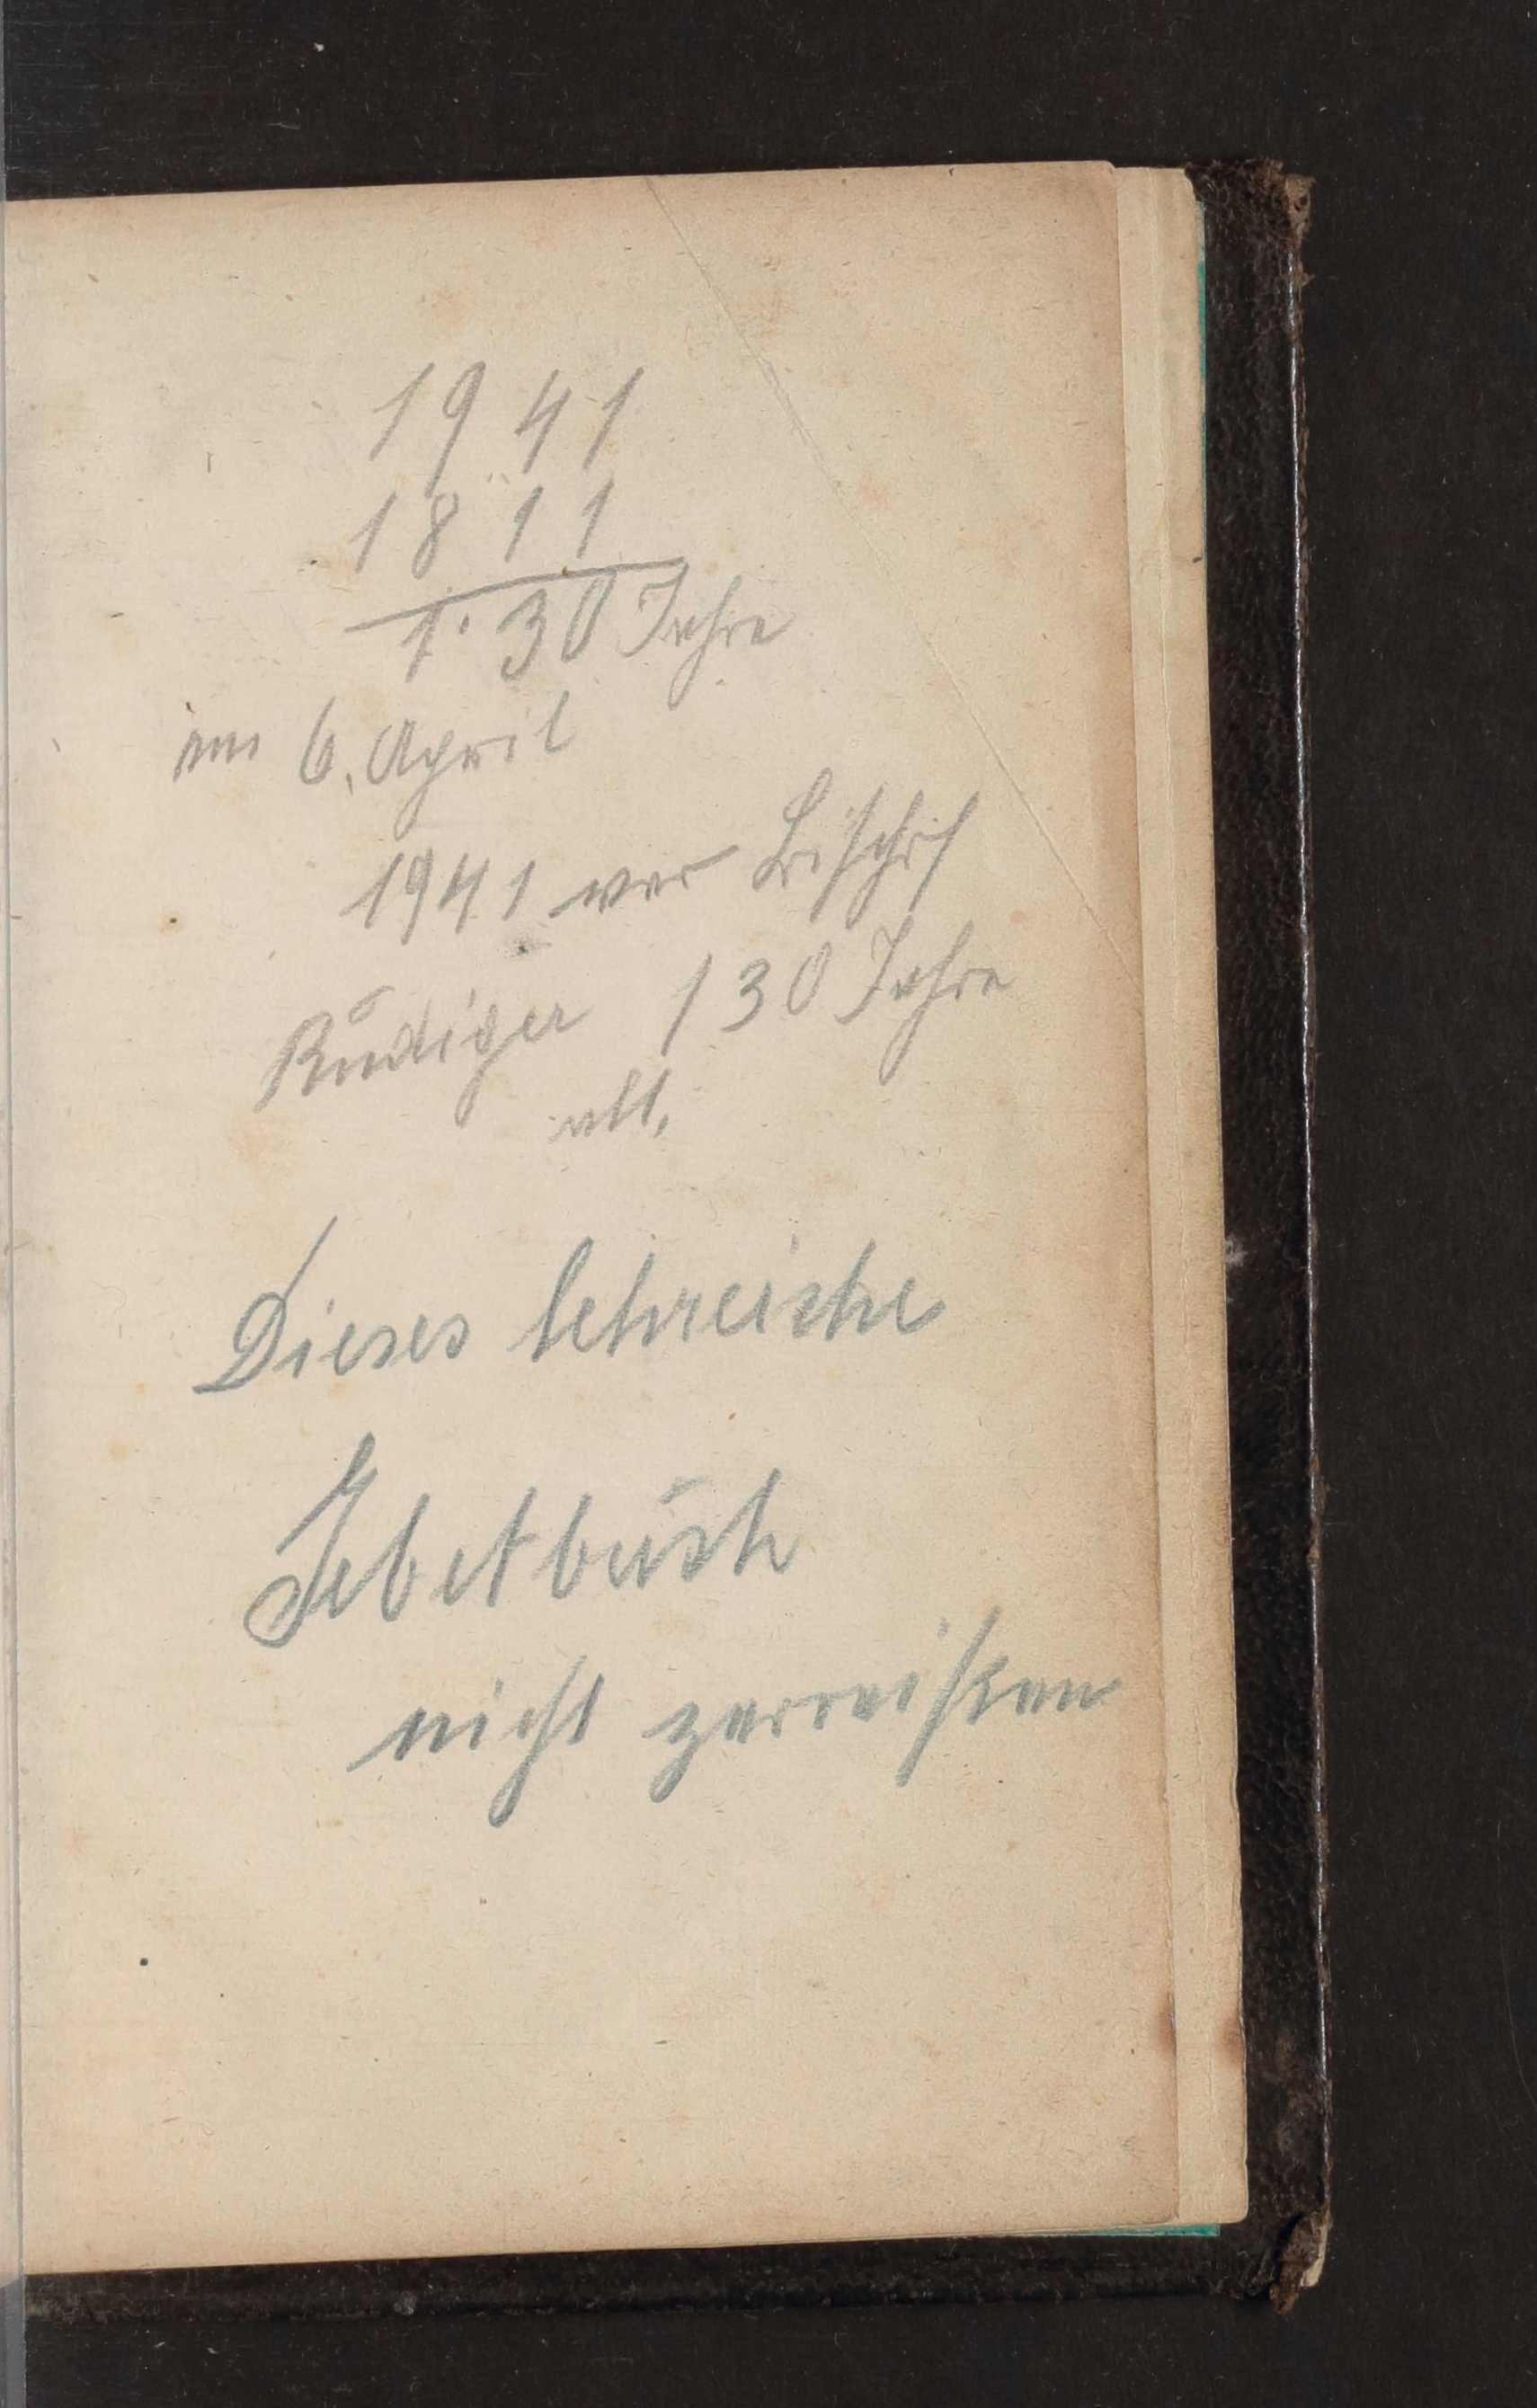 1941
1811
1·30 Jahre
am 6. April
1941 war Bischof
Rudiger 130 Jahre
alt.
Dieses lehreiche
Gebetbuch
nicht zerreißen